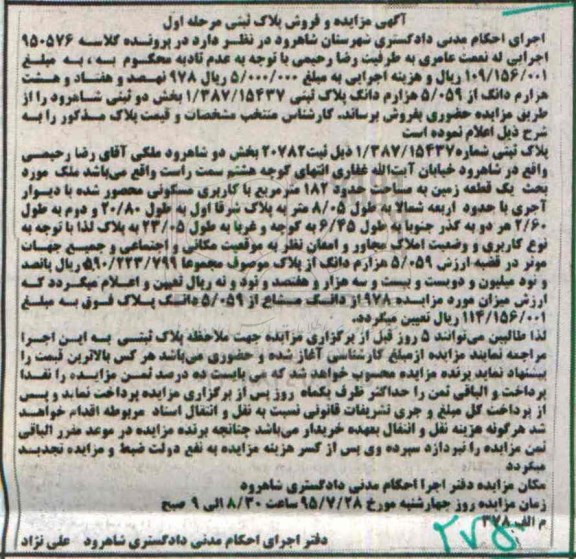 آگهی مزایده و فروش پلاک ثبتی مرحله اول
اجرای احکام مدنی دادگستری شهرستان شاهرود در نظر دارد در پرونده کلاسه ۹۵۰۵۷۶
اجرایی له نعمت عامری به طرفیت رضا رحیمی با توجه به عدم تادیه محکوم به ، به مبلغ
۱۰۹/۱۵۶/۰۰۱ ریال و هزینه اجرایی به مبلغ ۵/۰۰۰/۰۰۰ ریال ۹۷۸ نهصد و هفتاد و هشت
هزارم دانگ از ۵/۰۵۹ هزارم دانگ پلاک ثبتی ۱/۳۸۷/۱۵۴۳۷ بخش دو ثبتی شاهرود را از
طریق مزایده حضوری بفروش برساند. کارشناس منتخب مشخصات و قیمت پلاک مذکور را به
شرح ذیل اعلام نموده است
پلاک ثبتی شماره ۱/۳۸۷/۱۵۴۳۷ ذیل ثبت ۲۰۷۸۲ بخش دو شاهرود ملکی آقای رضا رحیمی
واقع در شاهرود خیابان آیت‌الله غفاری انتهای کوچه هشتم سمت راست واقع می‌باشد ملک مورد
بحث یک قطعه زمین به مساحت حدود ۱۸۲ متر مربع با کاربری مسکونی محصور شده با دیوار
آجری با حدود اربعه شمالا به طول ۸/۰۵ متر به پلاک شرقا اول به طول ۲۰/۸۰ و دوم به طول
۲/۶۰ هر دو به گذر جنوبا به طول ۶/۴۵ به کوچه و غربا به طول ۲۳/۰۵ به پلاک لذا با توجه به
نوع کاربری و وضعیت املاک مجاور و امعان نظر به موقعیت مکانی ، اجتماعی و جمیع جهات
موثر در قضیه ارزش ۵/۰۵۹ هزارم دانگ از پلاک موصوف مجموعا ۵۹۰/۲۲۳/۷۹۹ ریال پانصد
و نود میلیون و دویست و بیست و سه هزار و هفتصد و نود و نه ریال تعیین و اعلام میگردد که
ارزش میزان مورد مزایده ۹۷۸ از دانگ مشاع از ۵/۰۵۹ دانگ پلاک فوق به مبلغ
۱۱۴/۱۵۶/۰۰۱ ریال تعیین میگردد.
لذا طالبین می‌توانند ۵ روز قبل از برگزاری مزایده جهت ملاحظه پلاک ثبتی به این اجرا
مراجعه نمایند مزایده از مبلغ کارشناسی آغاز شده و حضوری می‌باشد هر کس بالاترین قیمت را
پیشنهاد نماید برنده مزایده محسوب خواهد شد که می بایست ده درصد ثمن مزایده را نقدا
پرداخت و الباقی ثمن را حداکثر ظرف یکماه روز پس از برگزاری مزایده پرداخت نماید و پس
از پرداخت کل مبلغ و جری تشریفات قانونی نسبت به نقل و انتقال اسناد مربوطه اقدام خواهد
شد هرگونه هزینه نقل و انتقال بعهده خریدار می‌باشد چنانچه برنده مزایده در موعد مقرر الباقی
ثمن مزایده را نپردازد سپرده وی پس از کسر هزینه مزایده به نفع دولت ضبط و مزایده تجدید
میگردد
مکان مزایده دفتر اجرا احکام مدنی دادگستری شاهرود
زمان مزایده روز چهارشنبه مورخ ۹۵/۷/۲۸ ساعت ۸/۳۰ الی ۹ صبح
م الف ۳۷۸
۲۷۵
دفتر اجرای احکام مدنی دادگستری شاهرود علی نژاد